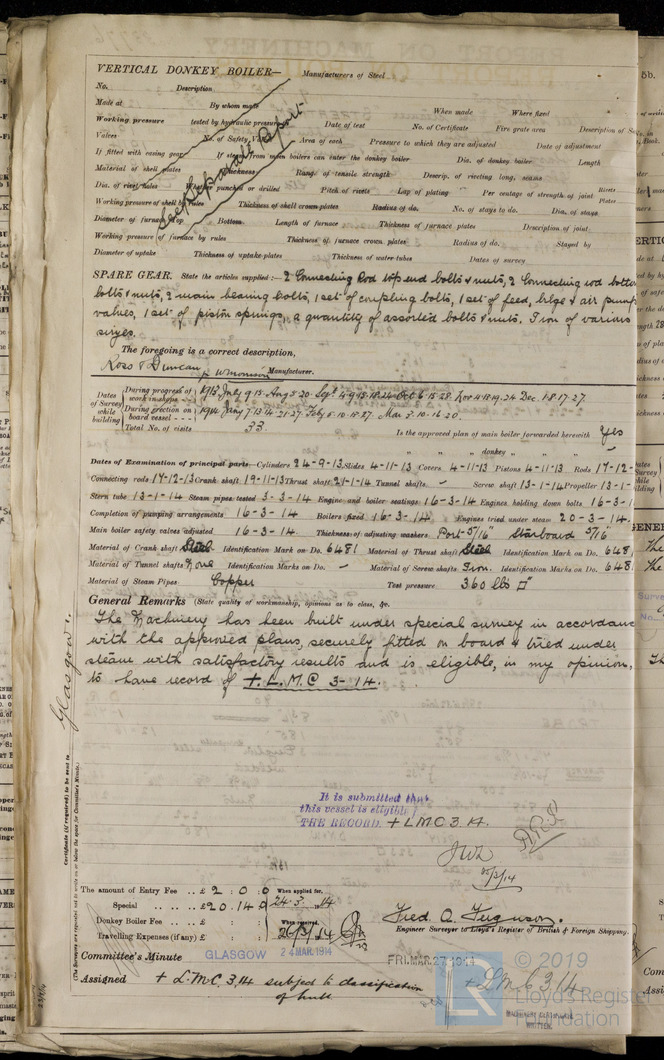 VERTICAL DONKEY BOILER— Manufacturers of Steel
No. Description
Made at By whom made When made Where fixed
Working pressure tested by hydraulic pressure Date of test No. of Certificate Fire grate area Description of
Valves No. of Safety Area of each Pressure to which they are adjusted Date of adjustment
If fitted with easing gear If steam from main boilers can enter the donkey boiler Dia. of donkey boiler Length
Material of shell plates Thickness Range of tensile strength Descrip. of riveting long. seams
Dia. of rivet holes Whether punched or drilled Pitch of rivets Lap of plating Per centage of strength of joint Rivets Plates
Working pressure of shell by rules Thickness of shell crown plates Radius of do. No. of stays to do. Dia. of stays
Diameter of furnace Top Bottom Length of furnace Thickness of furnace plates Description of joint
Working pressure of furnace by rules Thickness of furnace crown plates Radius of do. Stayed by
Diameter of uptake Thickness of uptake plates Thickness of water tubes Dates of survey
See Separate Report
SPARE GEAR. State the articles supplied:— 2 Connecting Rod top end bolts & nuts, 2 Connecting rod bottom
bolts & nuts, 2 main bearing bolts, 1 set of coupling bolts, 1 set of feed, bilge & air pump
valves, 1 set of piston springs, a quantity of assorted bolts & nuts. Iron of various
sizes.
The foregoing is a correct description,
Ross & Duncan Manufacturer.
Dates of Survey while building
During progress of work in shops - - 1913 July 9.15. Aug 5.20. Sept 4.9.15.18.24. Oct 6.15.28. Nov 4.18.19.24 Dec. 1.8.17.27.
During erection on board vessel - - - 1914 Jany 7.13.14.21.27. Feby 5.10.18.27. Mar 3.10.16.20.
Total No. of visits 33. Is the approved plan of main boiler forwarded herewith Yes
" " " donkey " " "
Dates of Examination of principal parts—Cylinders 24-9-13 Slides 4-11-13 Covers 4-11-13 Pistons 4-11-13 Rods 17-12-
Connecting rods 17-12-13 Crank shaft 19-11-13 Thrust shaft 21-1-14 Tunnel shafts - Screw shaft 13-1-14 Propeller 13-1-
Stern tube 13-1-14 Steam pipes tested 3-3-14 Engine and boiler seatings 16-3-14 Engines holding down bolts 16-3-1
Completion of pumping arrangements 16-3-14 Boilers fixed 16-3-14. Engines tried under steam 20-3-14.
Main boiler safety valves adjusted 16-3-14. Thickness of adjusting washers Port 5/16" Starboard 5/16"
Material of Crank shaft Steel Identification Mark on Do. 6481 Material of Thrust shaft Steel Identification Mark on Do. 648
Material of Tunnel shafts None Identification Marks on Do. - Material of Screw shafts Iron. Identification Marks on Do. 648
Material of Steam Pipes Copper Test pressure 360 lbs □"
General Remarks (State quality of workmanship, opinions as to class, &c.
The Machinery has been built under special survey in accordance
with the approved plans, securely fitted on board & tried under
steam with satisfactory results and is eligible, in my opinion,
to have record of + L.M.C 3-14.
Glasgow.
Certificate (if required) to be sent to
(The Surveyors are requested not to write on or below the space for Committee's Minute.)
It is submitted that
this vessel is eligible
THE RECORD. + LMC 3.14.
The amount of Entry Fee .. £ 2 : 0 : 0 When applied for,
Special .. .. £ 20 : 14 : 0 24.3.14
Donkey Boiler Fee .. .. £ : : When received,
Travelling Expenses (if any) £ : : 26/3/14
Fred. A. Ferguson.
Engineer Surveyor to Lloyd's Register of British & Foreign Shipping.
Committee's Minute GLASGOW 24 MAR. 1914 FRI. MAR. 27 1914
Assigned + L.M.C. 3,14 subject to classification
of hull
+ L.M.C 3.14
MACHINERY CERTIFICATE
WRITTEN.
© 2019
LR
Lloyd's Register
Foundation